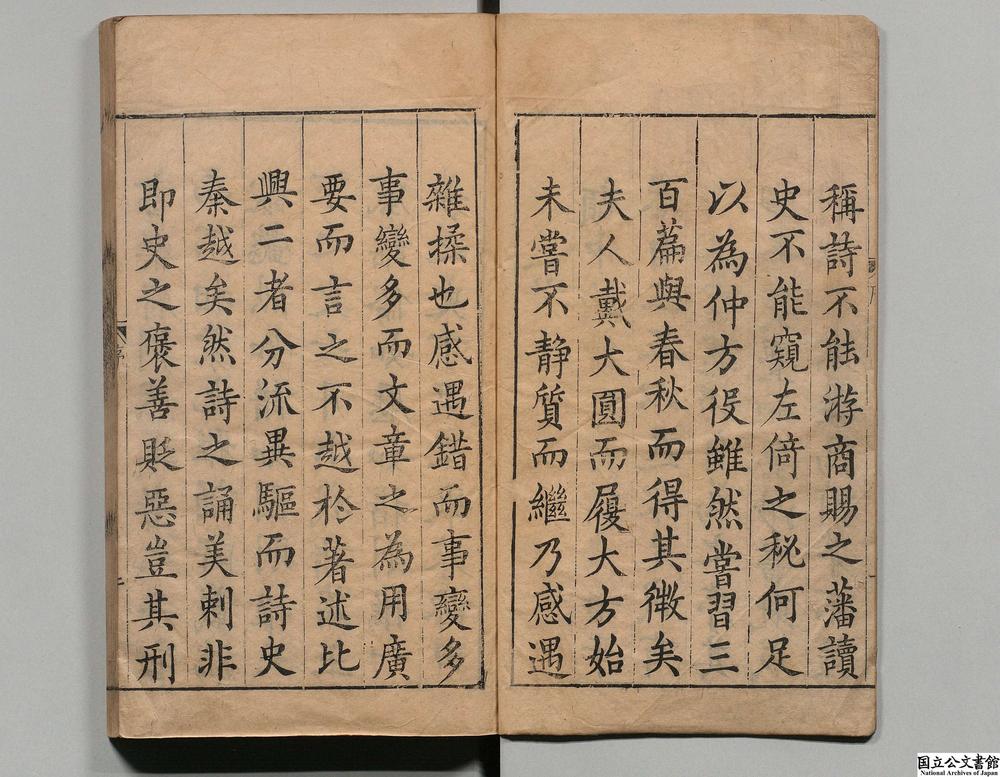 稱詩不能游商賜之藩讀
史不能窺左倚之秘何足
以為仲方役雖然嘗習三
百篇與春秋而得其微矣
夫人戴大圓而履大方始
未嘗不靜質而繼乃感遇
雜揉也感遇錯而事變多
事變多而文章之為用廣
要而言之不越於著述比
興二者分流異驅而詩史
秦越矣然詩之誦美刺非
即史之褒善貶惡豈其刑
序
国立公文書館
National Archives of Japan